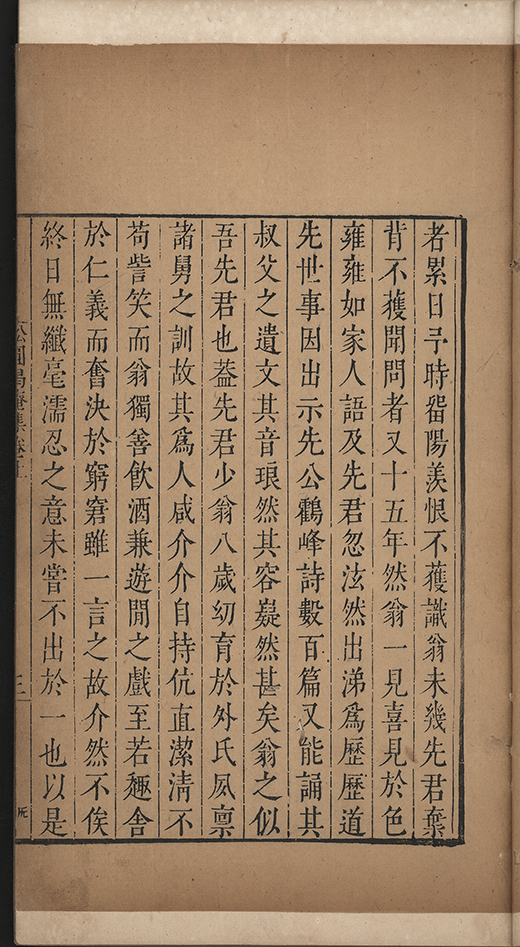 者累日予時畱陽羨恨不獲識翁未幾先君棄
背不獲聞問者又十五年然翁一見喜見於色
雍雍如家人語及先君忽泫然出涕爲歷歷道
先世事因出示先公鸖峰詩數百篇又能誦其
叔父之遺文其音琅然其容嶷然甚矣翁之似
吾先君也葢先君少翁八歲幼育於外氏夙禀
諸舅之訓故其爲人咸介介自持伉直潔清不
苟訾笑而翁獨善飲酒兼遊閒之戲至若趣舍
於仁義而奮決於窮窘雖一言之故介然不俟
終日無纖毫濡忍之意未嘗不出於一也以是
松圓偈庵集卷上
三